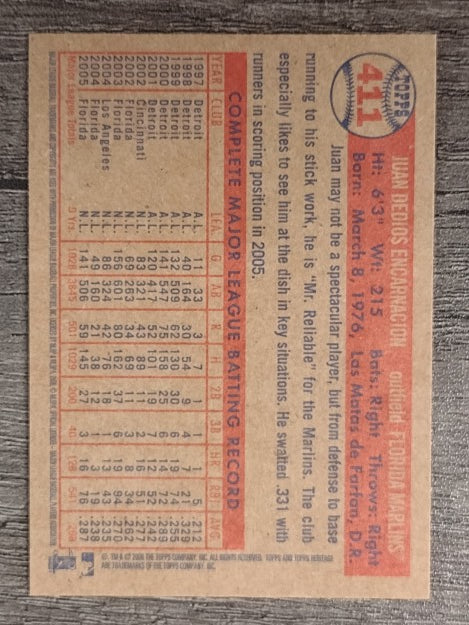 TOPPS
411
JUAN DEDIOS ENCARNACION outfield FLORIDA MARLINS
Ht: 6'3" Wt: 215 Bats: Right Throws: Right
Born: March 8, 1976, Las Matas de Farfan, D.R.
Juan may not be a spectacular player, but from defense to base
running to his stick work, he is "Mr. Reliable" for the Marlins. The club
especially likes to see him at the dish in key situations. He swatted .331 with
runners in scoring position in 2005.
COMPLETE MAJOR LEAGUE BATTING RECORD
YEAR CLUB LEA. G AB R H 2B 3B HR RBI AVG.
1997 Detroit A.L. 11 33 3 7 1 1 1 5 .212
1998 Detroit A.L. 40 164 30 54 9 4 7 21 .329
1999 Detroit A.L. 132 509 62 130 30 6 19 74 .255
2000 Detroit A.L. 141 547 75 158 25 6 14 72 .289
2001 Detroit A.L. 120 417 52 101 19 7 12 52 .242
2002 Cincinnati N.L. 83 321 43 89 11 2 16 51 .277
2002 Florida N.L. 69 263 34 69 3 8 34 .262
2003 Florida N.L. 156 601 80 162 37 6 19 94 .270
2004 Los Angeles N.L. 86 324 42 76 18 1 13 43 .235
2004 Florida N.L. 49 160 21 38 12 1 3 19 .238
2005 Florida N.L. 141 506 59 145 27 3 16 76 .287
Major League Totals 9 Yrs. 1028 3845 501 1029 200 40 128 541 .268
©, TM & © 2006 THE TOPPS COMPANY, INC. ALL RIGHTS RESERVED. TOPPS AND TOPPS HERITAGE
ARE TRADEMARKS OF THE TOPPS COMPANY, INC.